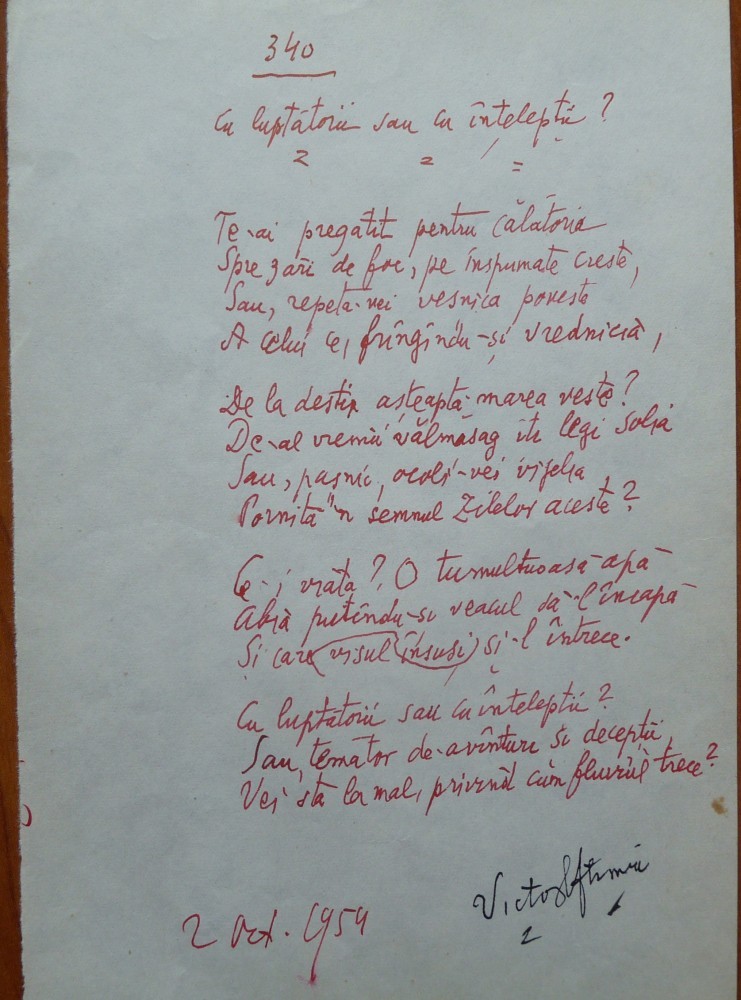 340
Cu luptătorii sau cu înțelepții?
Te-ai pregătit pentru călătoria
Spre zări de foc, pe înspumate creste,
Sau, repeta-vei veșnica poveste
A celui ce, frîngîndu-și vrednicia,
De la destin așteaptă marea veste?
De-al vremii vălmășag îți legi solia
Sau, pașnic, ocoli-vei vijelia
Pornită 'n semnul zilelor aceste?
Ce-i viața? O tumultuoasă apă
Abia putîndu-și veacul să-l încapă
Și care visul însuși și-l întrece.
Cu luptătorii sau cu înțelepții?
Sau, temător de-avînturi și decepții,
Vei sta la mal, privind cum fluviul trece?
2 Oct. 1954
Victor Eftimiu